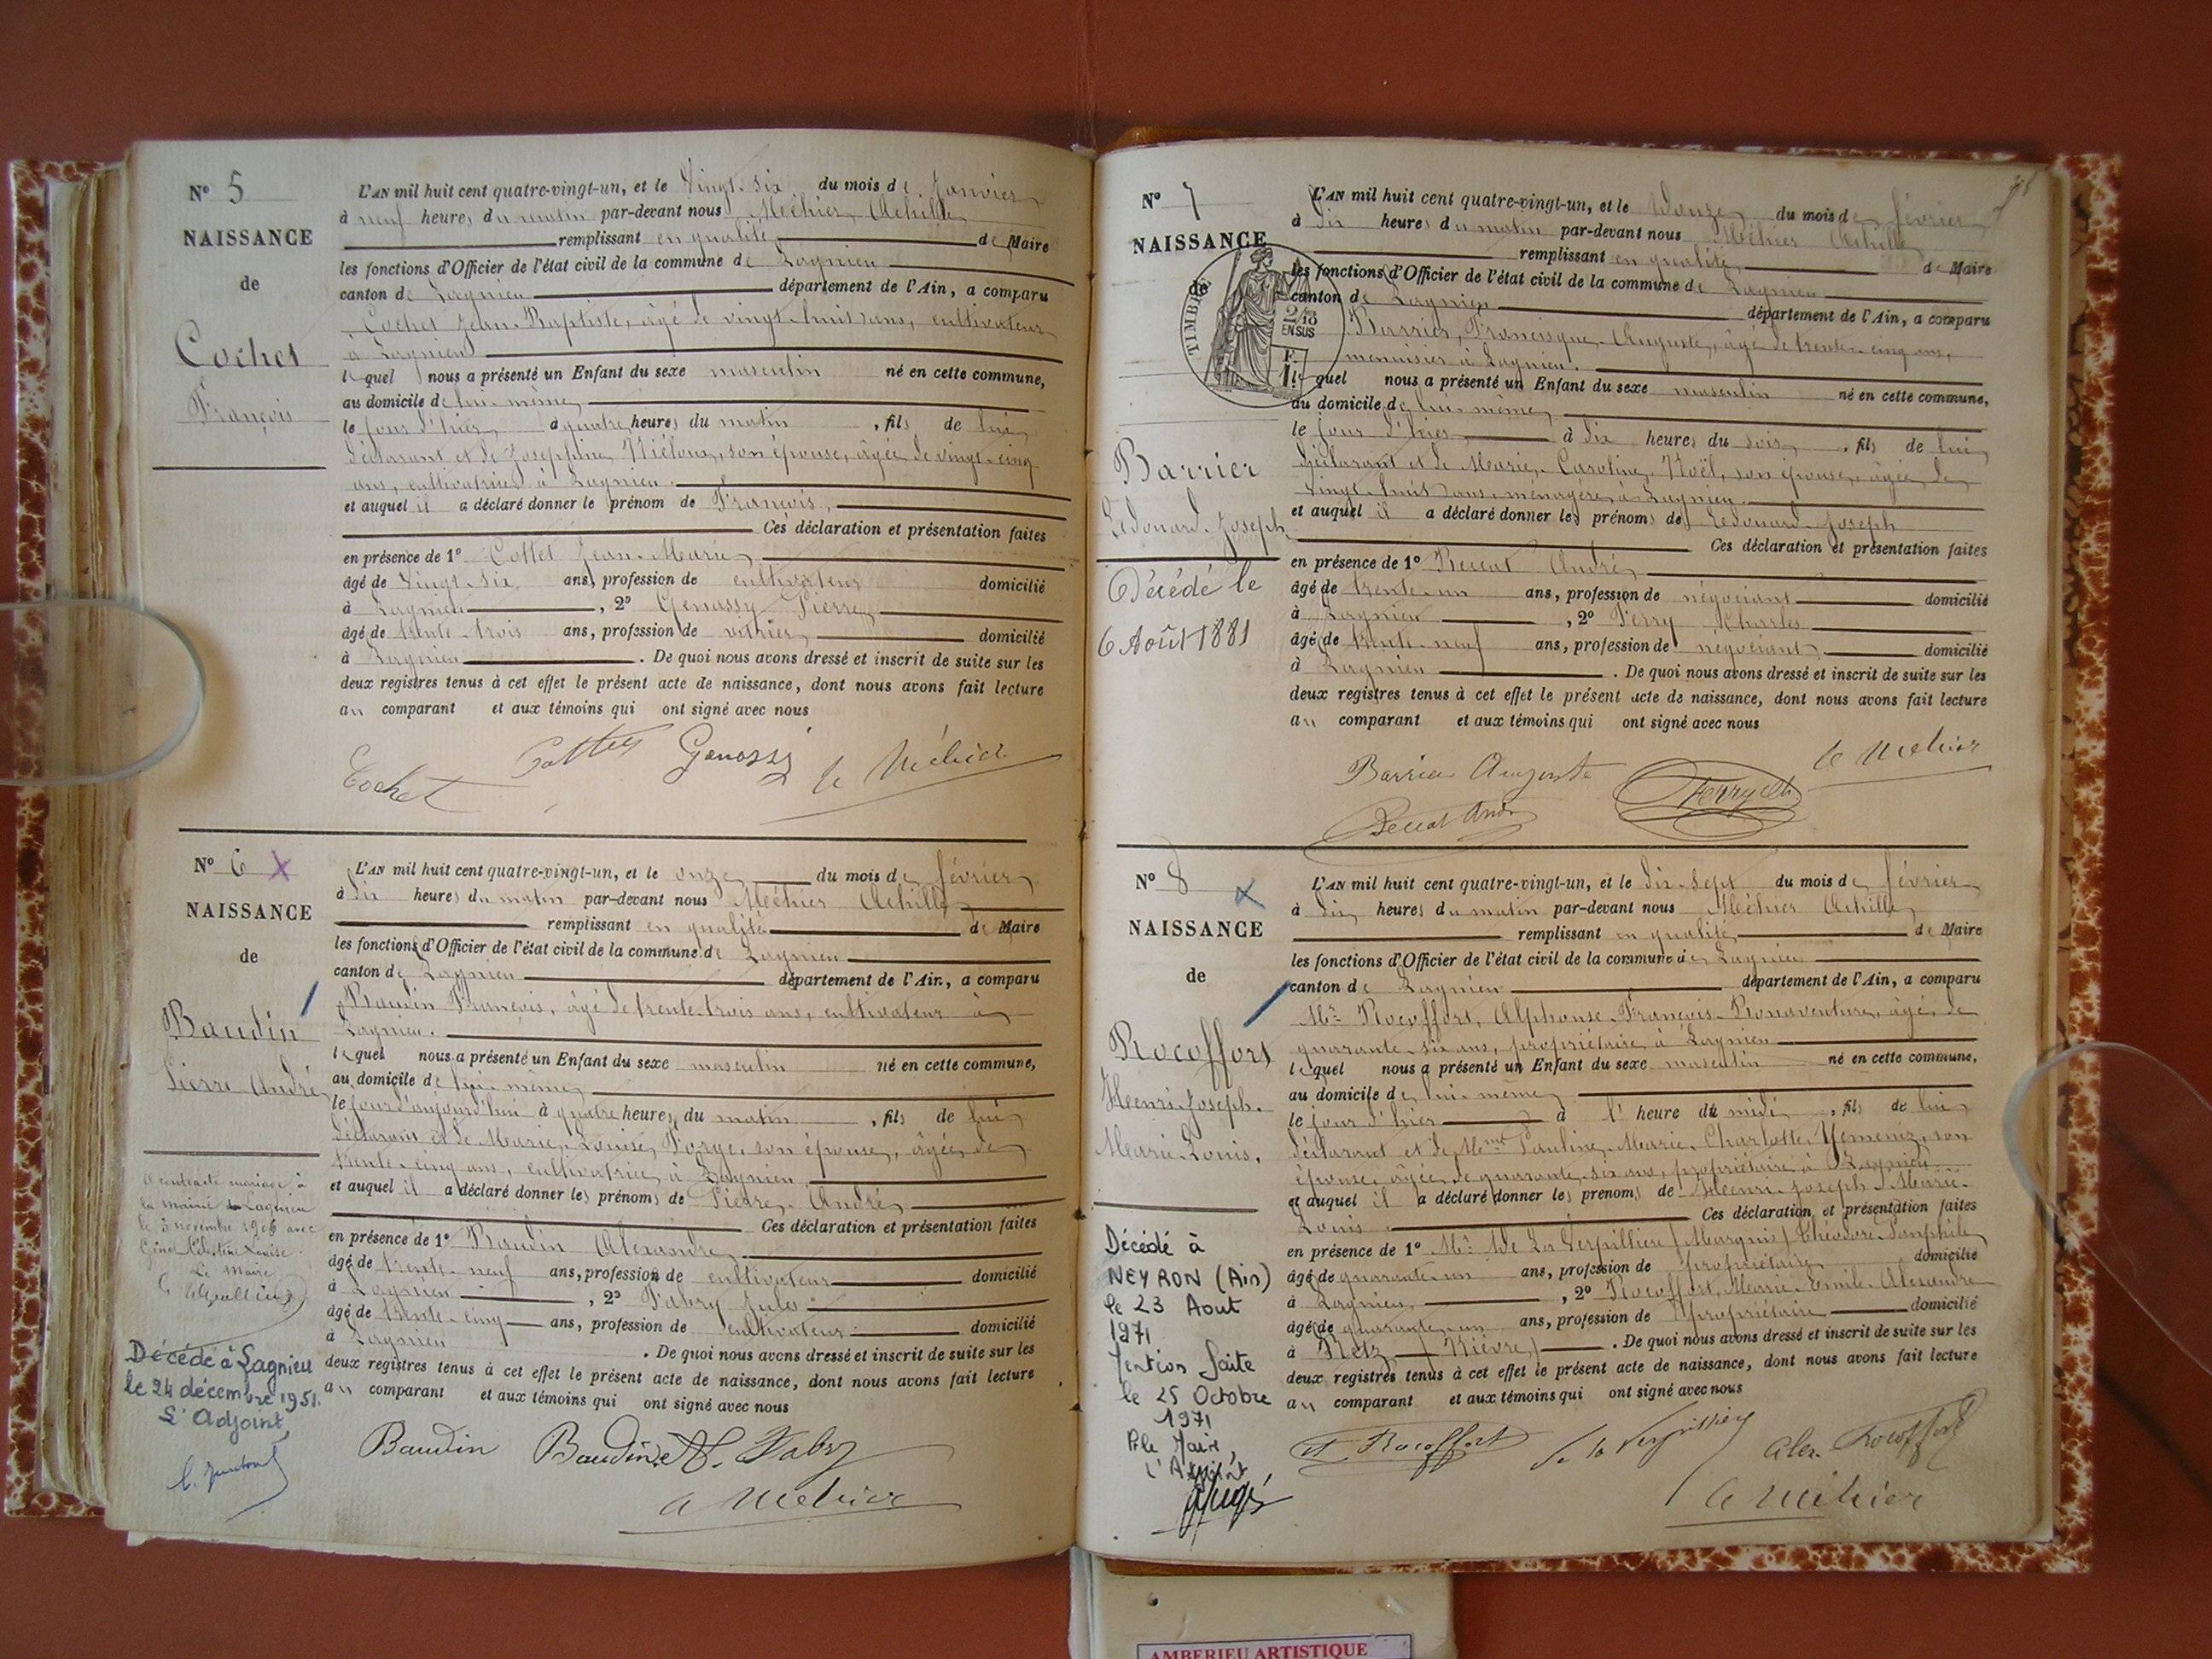 N° 5
NAISSANCE
de
Cochet
François
L'AN mil huit cent quatre-vingt-un, et le vingt-six du mois de Janvier
à neuf heures du matin par-devant nous Méhier Achille
remplissant en qualité de Maire
les fonctions d'Officier de l'état civil de la commune de Lagnieu
canton de Lagnieu département de l'Ain, a comparu
Cochet Jean-Baptiste, âgé de vingt-huit ans, cultivateur
à Lagnieu
lequel nous a présenté un Enfant du sexe masculin né en cette commune,
au domicile de lui-même
le jour d'hier à quatre heures du matin, fils de lui
déclarant et de Joséphine son épouse, âgée de vingt-cinq
ans, cultivatrice à Lagnieu.
et auquel il a déclaré donner le prénom de François,
Ces déclaration et présentation faites
en présence de 1° Cottet Jean-Marie
âgé de vingt-six ans, profession de cultivateur domicilié
à Lagnieu, 2° Genassy Pierre
âgé de trente-trois ans, profession de vitrier, domicilié
à Lagnieu. De quoi nous avons dressé et inscrit de suite sur les
deux registres tenus à cet effet le présent acte de naissance, dont nous avons fait lecture
au comparant et aux témoins qui ont signé avec nous
Cochet Cottet Genassy a Méhier
N° 6 X
NAISSANCE
de
Baudin
Pierre André
L'AN mil huit cent quatre-vingt-un, et le onze du mois de février
à dix heures du matin par-devant nous Méhier Achille
remplissant en qualité de Maire
les fonctions d'Officier de l'état civil de la commune de Lagnieu
canton de Lagnieu département de l'Ain, a comparu
Baudin François, âgé de trente-trois ans, cultivateur à
Lagnieu.
lequel nous a présenté un Enfant du sexe masculin né en cette commune,
au domicile de lui-même
le jour d'aujourd'hui à quatre heures du matin, fils de lui
déclarant et de Marie-Louise son épouse, âgée de
trente-cinq ans, cultivatrice à Lagnieu
et auquel il a déclaré donner les prénoms de Pierre-André
Ces déclaration et présentation faites
en présence de 1° Baudin Alexandre
âgé de trente-neuf ans, profession de cultivateur domicilié
à Lagnieu, 2° Fabry Jules
âgé de trente-cinq ans, profession de cultivateur domicilié
à Lagnieu. De quoi nous avons dressé et inscrit de suite sur les
deux registres tenus à cet effet le présent acte de naissance, dont nous avons fait lecture
au comparant et aux témoins qui ont signé avec nous
Baudin Baudin A. Fabry
a Méhier
A contracté mariage à
la mairie de Lagnieu
le 3 novembre 1906 avec
Célestine Louise
Le Maire
Décédé à Lagnieu
le 24 décembre 1951.
L'Adjoint,
N° 7
NAISSANCE
de
TIMBRE
2/10
EN SUS
Barrier
Ledouard-Joseph
Décédé le
6 Août 1881
L'AN mil huit cent quatre-vingt-un, et le douze du mois de février
à dix heures du matin par-devant nous Méhier Achille
remplissant en qualité de Maire
les fonctions d'Officier de l'état civil de la commune de Lagnieu
canton de Lagnieu département de l'Ain, a comparu
Barrier, Francisque-Auguste, âgé de trente-cinq ans,
menuisier à Lagnieu.
lequel nous a présenté un Enfant du sexe masculin né en cette commune,
au domicile de lui-même
le jour d'hier à dix heures du soir, fils de lui
déclarant et de Marie-Caroline Noël, son épouse, âgée de
vingt-huit ans, ménagère à Lagnieu
et auquel il a déclaré donner les prénoms de Ledouard-Joseph
Ces déclaration et présentation faites
en présence de 1° André
âgé de trente-un ans, profession de négociant domicilié
à Lagnieu, 2° Ferry Charles
âgé de trente-neuf ans, profession de négociant domicilié
à Lagnieu. De quoi nous avons dressé et inscrit de suite sur les
deux registres tenus à cet effet le présent acte de naissance, dont nous avons fait lecture
au comparant et aux témoins qui ont signé avec nous
Barrier Auguste Ferry Ch a Méhier
N° 8
NAISSANCE
de
Rocoffort
Henri-Joseph-
Marie-Louis.
L'AN mil huit cent quatre-vingt-un, et le dix-sept du mois de février
à dix heures du matin par-devant nous Méhier Achille
remplissant en qualité de Maire
les fonctions d'Officier de l'état civil de la commune de Lagnieu
canton de Lagnieu département de l'Ain, a comparu
Mr Rocoffort, Alphonse-François-Bonaventure, âgé de
quarante-six ans, propriétaire à Lagnieu
lequel nous a présenté un Enfant du sexe masculin né en cette commune,
au domicile de lui-même
le jour d'hier à l' heure de midi, fils de lui
déclarant et de Mme Pauline-Marie-Charlotte Yemeniz, son
épouse, âgée de quarante-six ans, propriétaire à Lagnieu
et auquel il a déclaré donner les prénoms de Henri-Joseph-Marie-
Louis. Ces déclaration et présentation faites
en présence de 1° Mr De La Verpillière (Marquis) Théodore-Pamphile
âgé de quarante-un ans, profession de propriétaire domicilié
à Lagnieu, 2° Rocoffort, Marie-Emile-Alexandre
âgé de quarante-un ans, profession de propriétaire domicilié
à (Nièvre). De quoi nous avons dressé et inscrit de suite sur les
deux registres tenus à cet effet le présent acte de naissance, dont nous avons fait lecture
au comparant et aux témoins qui ont signé avec nous
A Rocoffort de la Verpillière Alex. Rocoffort
a Méhier
Décédé à
NEYRON (Ain)
le 23 Aout
1971
Mention faite
le 25 Octobre
1971
P. le Maire,
L'Adjoint
AMBERIEU ARTISTIQUE